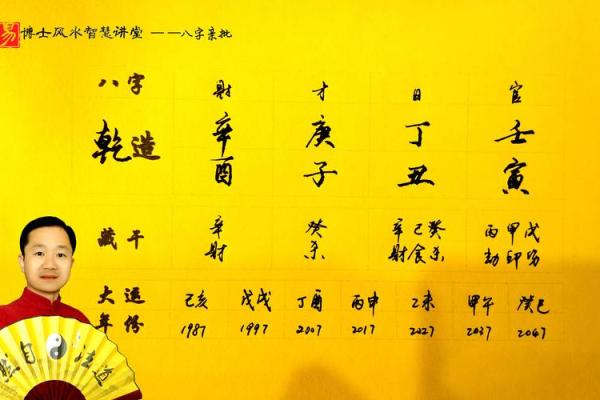 易 博士风水智慧讲堂 ——八字亲批
八字 財 才 日 官
乾造 辛 庚 丁 壬
酉 子 丑 寅
藏干 辛 癸 辛己癸 丙甲戊
財 杀 財食杀 劫印伤
大運 己亥 戊戌 丁酉 丙申 乙未 甲午 癸巳
年份 1987 1997 2007 2017 2027 2037 2047
然自 法道